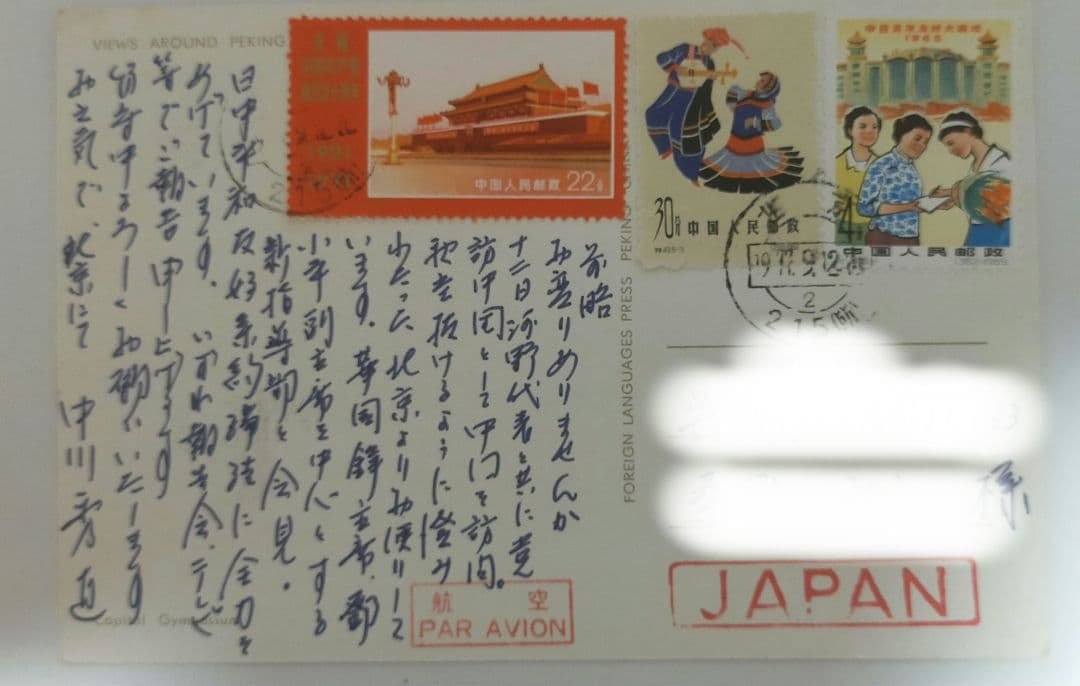 VIEWS AROUND PEKING
中国人民邮政 22分
1921
30分 中国人民邮政
1965
中国人民邮政
19 77.9.12
2
前略
お変りありませんか
十二日河野代表と共に党
訪中団として中国を訪問。
秋空抜けるように澄み
わたった北京よりお便りして
います。華国鋒主席、鄧
小平副主席を中心とする
新指導部と会見。
日中平和友好条約締結に全力を
あげています。いずれ報告会、テレビ
等でご報告申し上げます
お元気で、北京にて 中川秀直
FOREIGN LANGUAGES PRESS PEKING
様
航空
PAR AVION
JAPAN
Capital Gymnasium